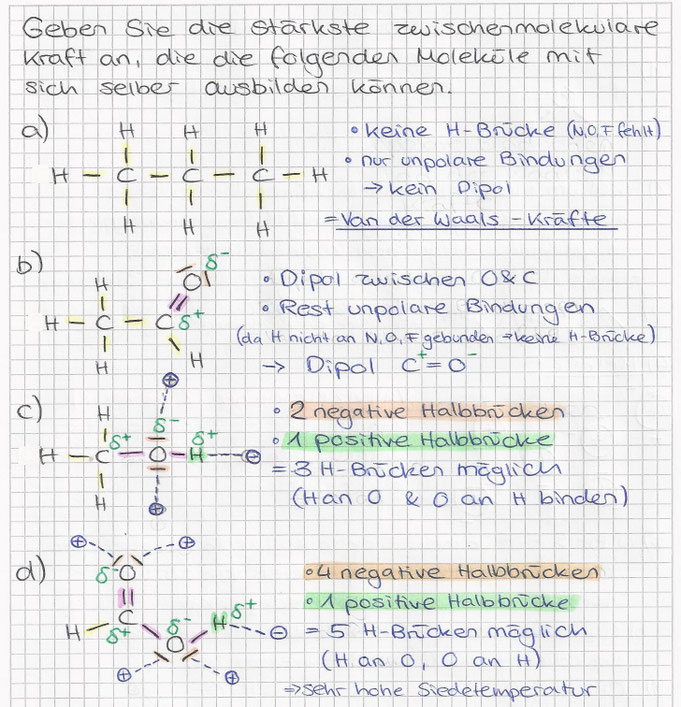 Geben Sie die stärkste zwischenmolekulare
Kraft an, die die folgenden Moleküle mit
sich selber ausbilden können.
a)
H H H
H – C – C – C – H
H H H
• keine H-Brücke (N,O,F fehlt)
• nur unpolare Bindungen
→ kein Dipol
= Van der Waals - Kräfte
b)
O δ-
H
H – C – C δ+
H H
• Dipol zwischen O & C
• Rest unpolare Bindungen
(da H nicht an N,O,F gebunden → keine H-Brücke)
→ Dipol C+ = O-
c)
⊕
H δ- δ+
δ+
H – C – O – H ⊖
H ⊕
• 2 negative Halbbrücken
• 1 positive Halbbrücke
= 3 H-Brücken mäglich
(H an O & O an H binden)
d)
⊕ ⊕
δ- O
C δ- H δ+
H δ+ O ⊖
⊕ ⊕
• 4 negative Halbbrücken
• 1 positive Halbbrücke
= 5 H-Brücken mäglich
(H an O, O an H)
⇒ sehr hohe Siedetemperatur